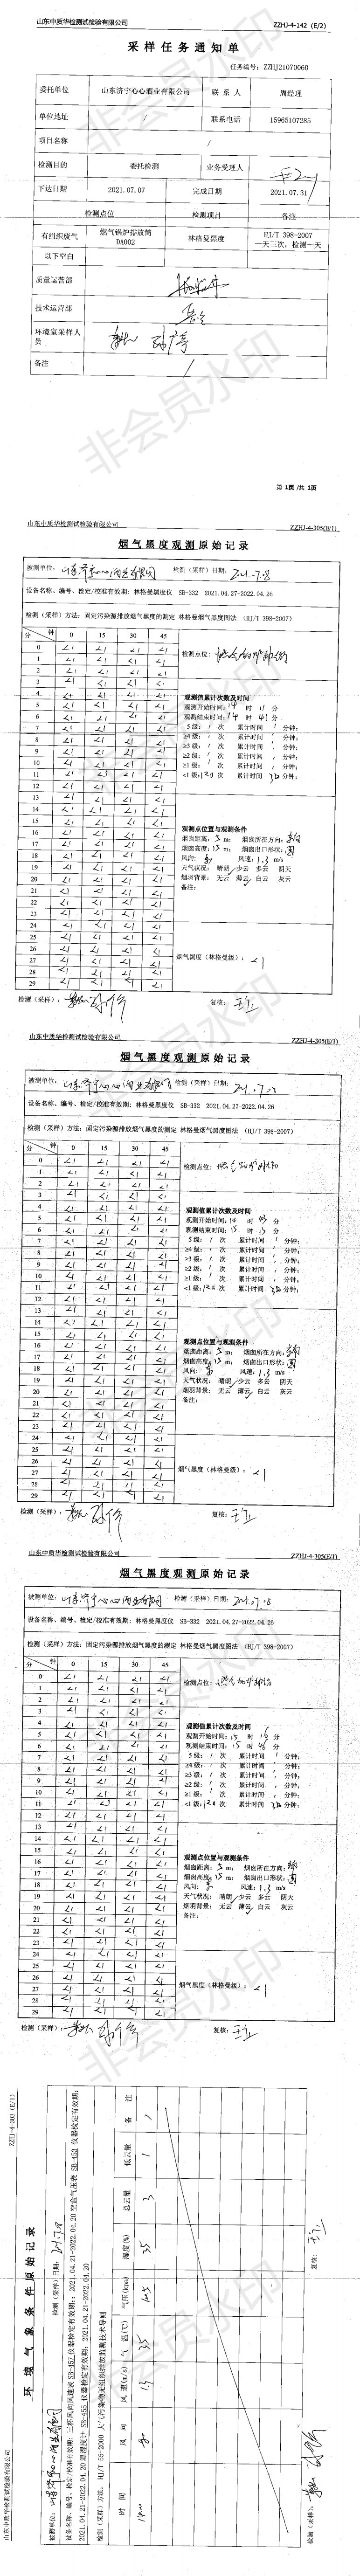 山东中质华检测试检验有限公司 ZZHJ-4-142 (E/2)
采样任务通知单
任务编号: ZZHJ21070060
委托单位 山东济宁心心酒业有限公司 联系人 周经理
单位地址 / 联系电话 15965107285
项目名称 /
检测目的 委托检测 业务受理人
下达日期 2021.07.07 完成日期 2021.07.31
检测点位 检测项目 备注
有组织废气 燃气锅炉排放筒 DA002 林格曼黑度 HJ/T 398-2007 一天三次,检测一天
以下空白
质量运营部
技术运营部
环境室采样人员
备注 /
第 1页 /共 1页
山东中质华检测试检验有限公司 ZZHJ-4-305(E/1)
烟气黑度观测原始记录
被测单位: 山东济宁心心酒业有限公司 检测(采样)日期: 2021.07.08
设备名称、编号、检定/校准有效期: 林格曼黑度仪 SB-332 2021.04.27-2022.04.26
检测(采样)方法: 固定污染源排放烟气黑度的测定 林格曼烟气黑度图法 (HJ/T 398-2007)
分 秒 0 15 30 45
0 <1 <1 <1 <1 检测点位:
1 <1 <1 <1 <1
2 <1 <1 <1 <1
3 <1 <1 <1 <1
4 <1 <1 <1 <1 观测值累计次数及时间
5 <1 <1 <1 <1 观测开始时间: 14 时 11 分
6 <1 <1 <1 <1 观测结束时间: 14 时 41 分
7 <1 <1 <1 <1 5 级: / 次 累计时间 / 分钟;
8 <1 <1 <1 <1 ≥4 级: / 次 累计时间 / 分钟;
9 <1 <1 <1 <1 ≥3 级: / 次 累计时间 / 分钟;
10 <1 <1 <1 <1 ≥2 级: / 次 累计时间 / 分钟;
11 <1 <1 <1 <1 ≥1 级: / 次 累计时间 / 分钟;
12 <1 <1 <1 <1 <1 级: 120 次 累计时间 30 分钟;
13 <1 <1 <1 <1
14 <1 <1 <1 <1
15 <1 <1 <1 <1 观测点位置与观测条件
16 <1 <1 <1 <1 烟囱距离: 5 m; 烟囱所在方向:
17 <1 <1 <1 <1 烟囱高度: 15 m; 烟囱出口形状: 圆
18 <1 <1 <1 <1 风向: 风速: 1.3 m/s
19 <1 <1 <1 <1 天气状况: 晴朗 少云 多云 阴天
20 <1 <1 <1 <1 烟羽背景: 无云 薄云 白云 灰云
21 <1 <1 <1 <1 备注:
22 <1 <1 <1 <1
23 <1 <1 <1 <1
24 <1 <1 <1 <1
25 <1 <1 <1 <1
26 <1 <1 <1 <1
27 <1 <1 <1 <1 烟气黑度(林格曼级): <1
28 <1 <1 <1 <1
29 <1 <1 <1 <1
检测(采样): 复核:
山东中质华检测试检验有限公司 ZZHJ-4-305(E/1)
烟气黑度观测原始记录
被测单位: 山东济宁心心酒业有限公司 检测(采样)日期: 2021.07.08
设备名称、编号、检定/校准有效期: 林格曼黑度仪 SB-332 2021.04.27-2022.04.26
检测(采样)方法: 固定污染源排放烟气黑度的测定 林格曼烟气黑度图法 (HJ/T 398-2007)
分 秒 0 15 30 45
0 <1 <1 <1 <1 检测点位:
1 <1 <1 <1 <1
2 <1 <1 <1 <1
3 <1 <1 <1 <1
4 <1 <1 <1 <1 观测值累计次数及时间
5 <1 <1 <1 <1 观测开始时间: 14 时 43 分
6 <1 <1 <1 <1 观测结束时间: 15 时 13 分
7 <1 <1 <1 <1 5 级: / 次 累计时间 / 分钟;
8 <1 <1 <1 <1 ≥4 级: / 次 累计时间 / 分钟;
9 <1 <1 <1 <1 ≥3 级: / 次 累计时间 / 分钟;
10 <1 <1 <1 <1 ≥2 级: / 次 累计时间 / 分钟;
11 <1 <1 <1 <1 ≥1 级: / 次 累计时间 / 分钟;
12 <1 <1 <1 <1 <1 级: 120 次 累计时间 30 分钟;
13 <1 <1 <1 <1
14 <1 <1 <1 <1
15 <1 <1 <1 <1 观测点位置与观测条件
16 <1 <1 <1 <1 烟囱距离: 5 m; 烟囱所在方向:
17 <1 <1 <1 <1 烟囱高度: 15 m; 烟囱出口形状: 圆
18 <1 <1 <1 <1 风向: 风速: 1.3 m/s
19 <1 <1 <1 <1 天气状况: 晴朗 少云 多云 阴天
20 <1 <1 <1 <1 烟羽背景: 无云 薄云 白云 灰云
21 <1 <1 <1 <1 备注:
22 <1 <1 <1 <1
23 <1 <1 <1 <1
24 <1 <1 <1 <1
25 <1 <1 <1 <1
26 <1 <1 <1 <1
27 <1 <1 <1 <1 烟气黑度(林格曼级): <1
28 <1 <1 <1 <1
29 <1 <1 <1 <1
检测(采样): 复核:
山东中质华检测试检验有限公司 ZZHJ-4-305(E/1)
烟气黑度观测原始记录
被测单位: 山东济宁心心酒业有限公司 检测(采样)日期: 2021.07.08
设备名称、编号、检定/校准有效期: 林格曼黑度仪 SB-332 2021.04.27-2022.04.26
检测(采样)方法: 固定污染源排放烟气黑度的测定 林格曼烟气黑度图法 (HJ/T 398-2007)
分 秒 0 15 30 45
0 <1 <1 <1 <1 检测点位:
1 <1 <1 <1 <1
2 <1 <1 <1 <1
3 <1 <1 <1 <1
4 <1 <1 <1 <1 观测值累计次数及时间
5 <1 <1 <1 <1 观测开始时间: 15 时 分
6 <1 <1 <1 <1 观测结束时间: 15 时 分
7 <1 <1 <1 <1 5 级: / 次 累计时间 / 分钟;
8 <1 <1 <1 <1 ≥4 级: / 次 累计时间 / 分钟;
9 <1 <1 <1 <1 ≥3 级: / 次 累计时间 / 分钟;
10 <1 <1 <1 <1 ≥2 级: / 次 累计时间 / 分钟;
11 <1 <1 <1 <1 ≥1 级: / 次 累计时间 / 分钟;
12 <1 <1 <1 <1 <1 级: 120 次 累计时间 30 分钟;
13 <1 <1 <1 <1
14 <1 <1 <1 <1
15 <1 <1 <1 <1 观测点位置与观测条件
16 <1 <1 <1 <1 烟囱距离: 5 m; 烟囱所在方向:
17 <1 <1 <1 <1 烟囱高度: 15 m; 烟囱出口形状: 圆
18 <1 <1 <1 <1 风向: 风速: 1.3 m/s
19 <1 <1 <1 <1 天气状况: 晴朗 少云 多云 阴天
20 <1 <1 <1 <1 烟羽背景: 无云 薄云 白云 灰云
21 <1 <1 <1 <1 备注:
22 <1 <1 <1 <1
23 <1 <1 <1 <1
24 <1 <1 <1 <1
25 <1 <1 <1 <1
26 <1 <1 <1 <1
27 <1 <1 <1 <1 烟气黑度(林格曼级): <1
28 <1 <1 <1 <1
29 <1 <1 <1 <1
检测(采样): 复核:
山东中质华检测试检验有限公司 ZZHJ-4-303 (E/1)
环境气象条件原始记录
被测单位: 山东济宁心心酒业有限公司 检测(采样)日期: 2021.7.08
设备名称、编号、检定/校准有效期: 三杯风向风速表 仪器检定有效期: 2021.04.21-2022.04.20 空盒气压表 仪器检定有效期:
2021.04.21-2022.04.20 温湿度计 仪器检定有效期: 2021.04.21-2022.04.20
检测(采样)方法: HJ/T 55-2000 大气污染物无组织排放监测技术导则
时间 风向 风速(m/s) 气温(℃) 气压(kpa) 湿度(%) 总云量 低云量 备注
1.3 35 35 3 1 /
检测(采样): 复核:
非会员水印